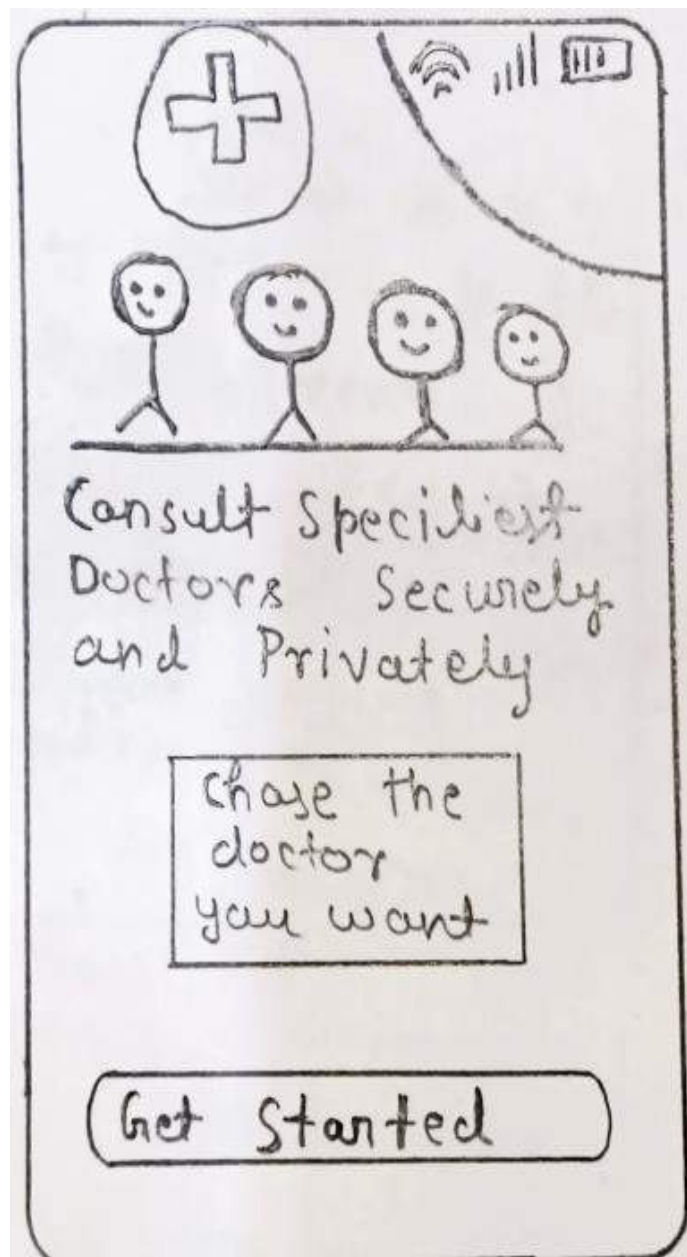 Consult Speciliest
Doctors Securely
and Privately
Chose the
doctor
you want
Get Started